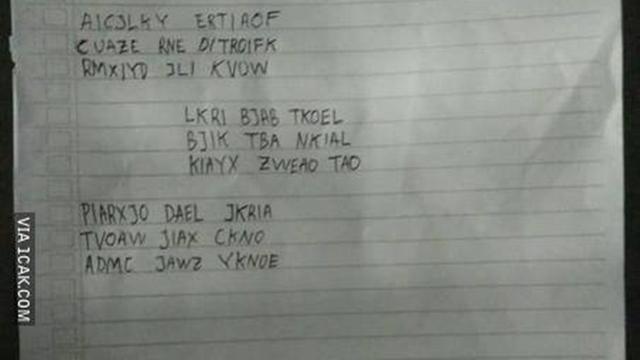 AICJLKY ERTIAOF
CUAZE RNE D/TROIFK
RMXIYD JLI KVOW
LKRI BJAB TKOEL
BJIK TBA NKIAL
KIAYX ZWEAO TAO
PIARXJO DAEL JKRIA
TVOAW JIAX CKNO
ADMC JAWZ YKNOE
VIA 1CAK.COM